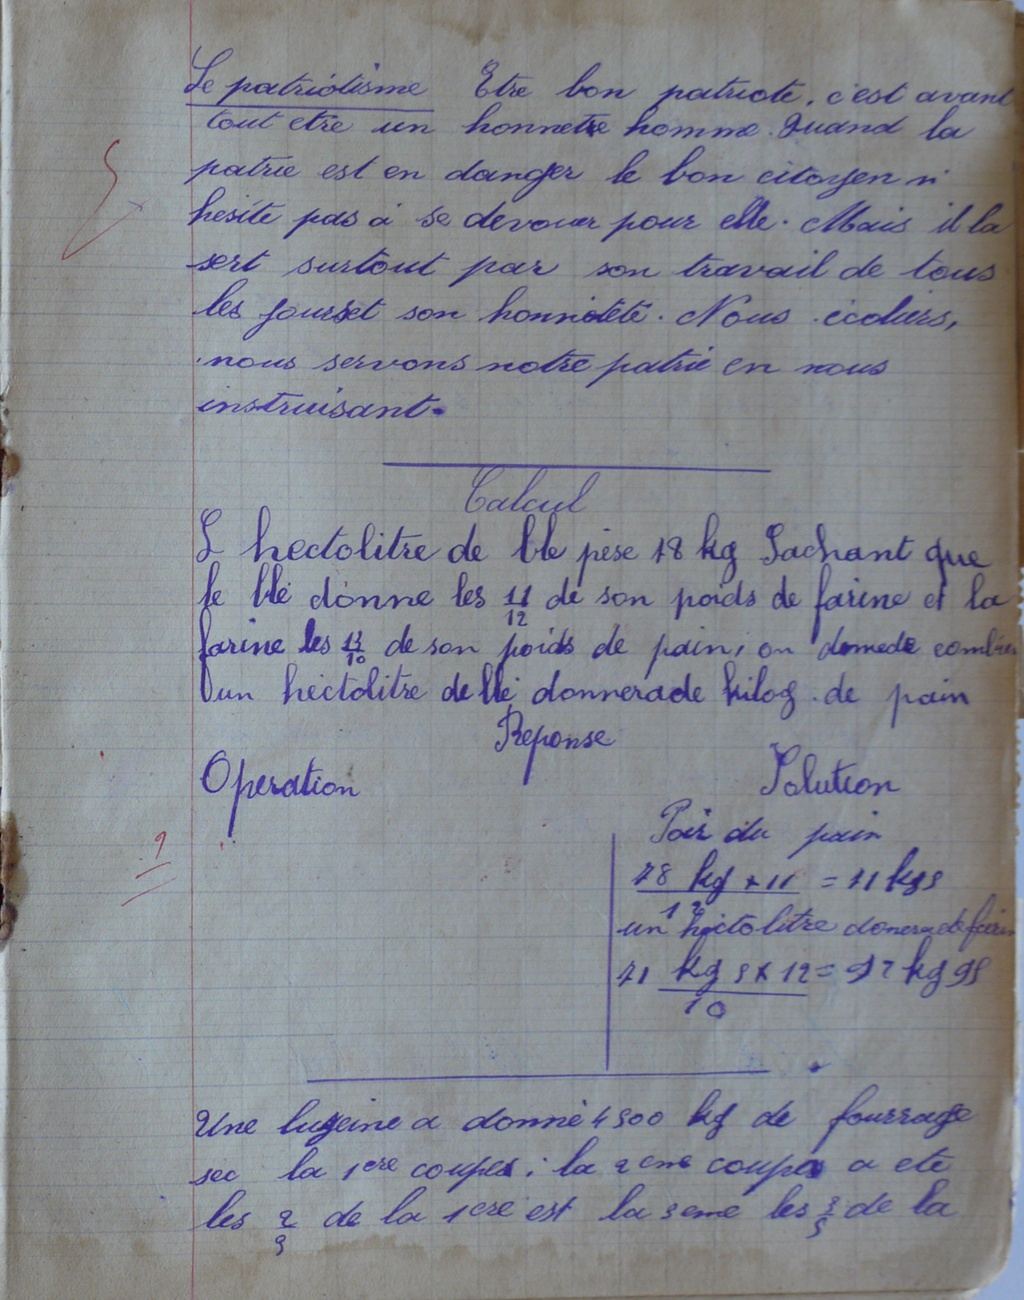 Le patriotisme Etre bon patriote, c'est avant
tout etre un honnetre homme. Quand la
patrie est en danger le bon citoyen n'
hesite pas à se devouer pour elle. Mais il la
sert surtout par son travail de tous
les jourset son honnéteté. Nous écoliers,
nous servons notre patrie en nous
instruisant.
Calcul
L hectolitre de ble pèse 78 kg Sachant que
le blé donne les 11/12 de son poids de farine et la
farine les 13/10 de son poids de pain, on demede combien
un hectolitre de blé donnerade kilog. de pain
Reponse
Operation Solution
Poir du pain
78 kg × 11 = 71 kg 5
12
un hectolitre donnera de farin
71 kg 5 × 12 = 92 kg 95
10
Une luzeine a donné 4500 kg de fourrage
sec la 1ere coupe; la 2eme coupe a eté
les 2/3 de la 1ere est la 3eme les 3/5 de la